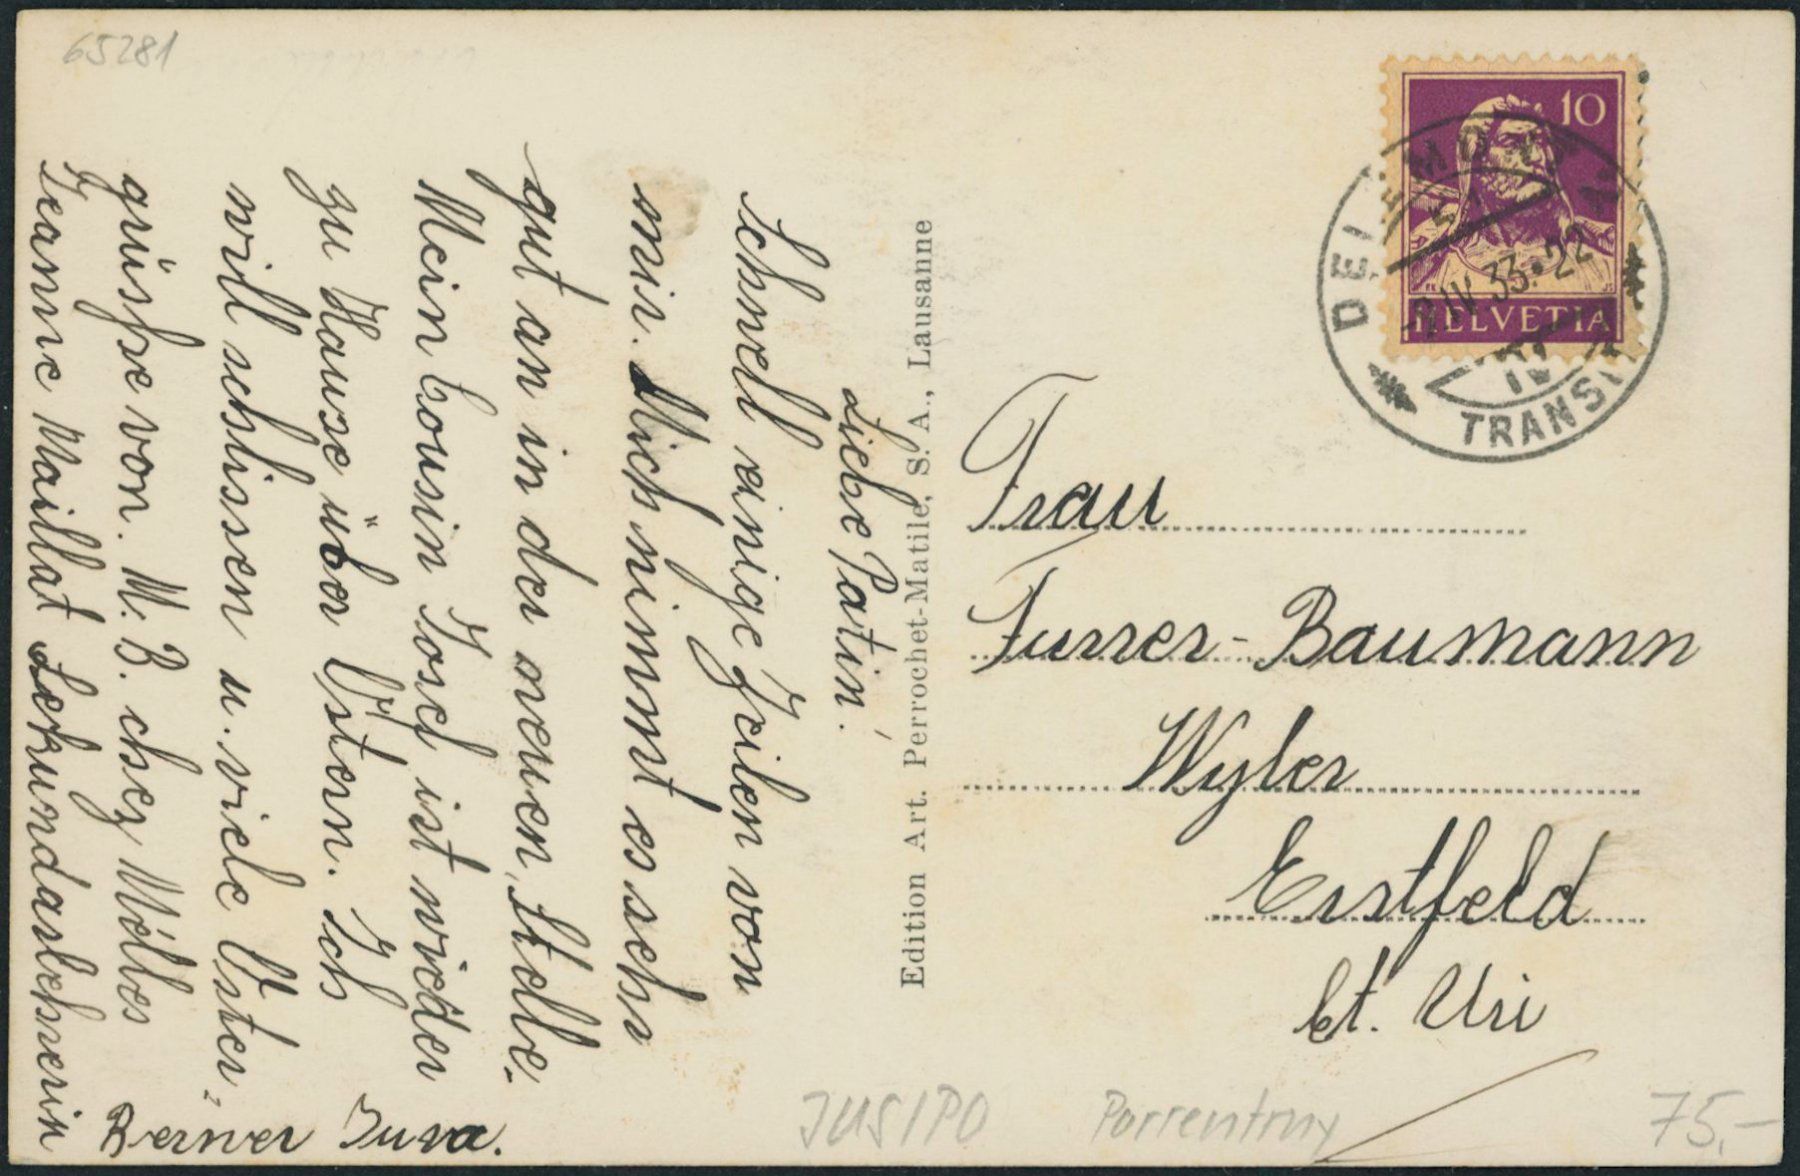 65281
Liebe Patin.
Schnell einige Zeilen von
mir. Mich nimmt es sehr
gut an in der neuen Stelle.
Mein Cousin Josef ist wieder
zu Hause über Ostern. Ich
will schlissen u. viele Oster-
grüsse von. M. B. chez
Jeanne Maillat Sekundarlehrerin
Berner Jura.
Edition Art. Perrochet-Matile, S. A., Lausanne
10
HELVETIA
DELÉMONT
-9 IV 33.22
IV
TRANSIT
Frau
Furrer-Baumann
Wyler
Erstfeld
Ct. Uri
JUS1PO
Porrentruy
75,-